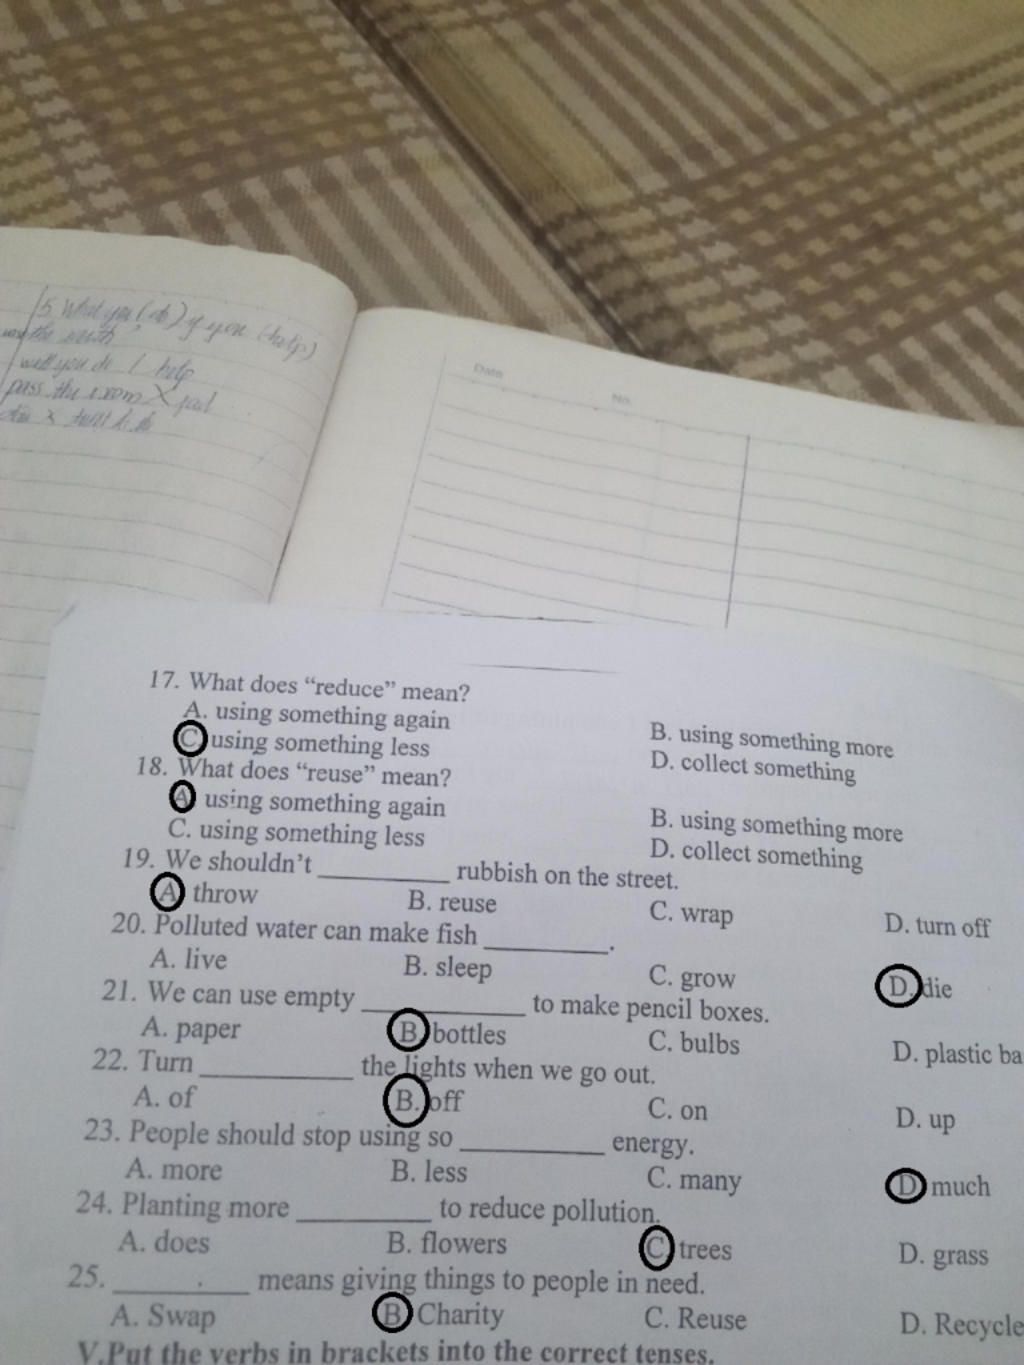 5. What you (do) if you (help)
the earth
will you do / help
pass the exam X fail
Date
No.
17. What does “reduce” mean?
A. using something again
B. using something more
C. using something less
D. collect something
18. What does “reuse” mean?
A. using something again
B. using something more
C. using something less
D. collect something
19. We shouldn’t __________ rubbish on the street.
A. throw B. reuse C. wrap D. turn off
20. Polluted water can make fish __________.
A. live B. sleep C. grow D. die
21. We can use empty _____________ to make pencil boxes.
A. paper B. bottles C. bulbs D. plastic ba
22. Turn ____________ the lights when we go out.
A. of B. off C. on D. up
23. People should stop using so ___________ energy.
A. more B. less C. many D. much
24. Planting more __________ to reduce pollution.
A. does B. flowers C. trees D. grass
25. __________ means giving things to people in need.
A. Swap B. Charity C. Reuse D. Recycle
V.Put the verbs in brackets into the correct tenses.